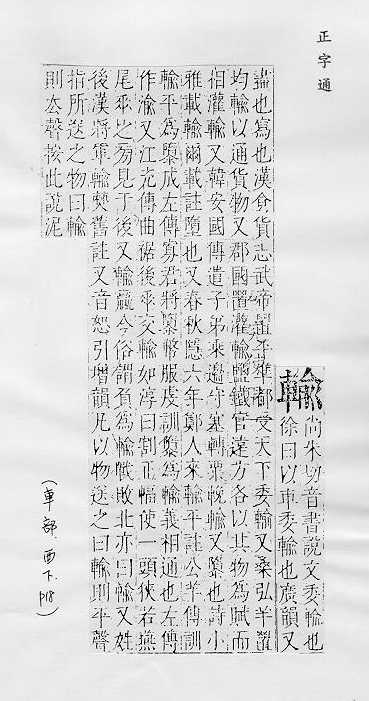 正字通
輸
尚朱切音書說文委輸也
徐曰以車委輸也廣韻又
盡也寫也漢食貨志武帝置平準都受天下委輸又桑弘羊置
均輸以通貨物又郡國置灌輸鹽鐵官遠方各以其物為賦而
相灌輸又韓安國傳遣子弟乘邊守塞轉粟輓輸又隳也詩小
雅載輸爾載註墮也又春秋隱六年鄭人來輸平註公羊傳訓
輸平為隳成左傳寡君將隳幣服虔訓隳為輸義相通也左傳
作渝又江充傳曲裾後垂交輸如淳曰割正幅使一頭狹若燕
尾垂之㫄見于後又輸贏今俗謂負為輸戰敗北亦曰輸又姓
後漢將軍輸舊註又音恕引增韻凡以物送之曰輸則平聲
指所送之物曰輸
則去聲按此說泥
(車部.酉下.P18)